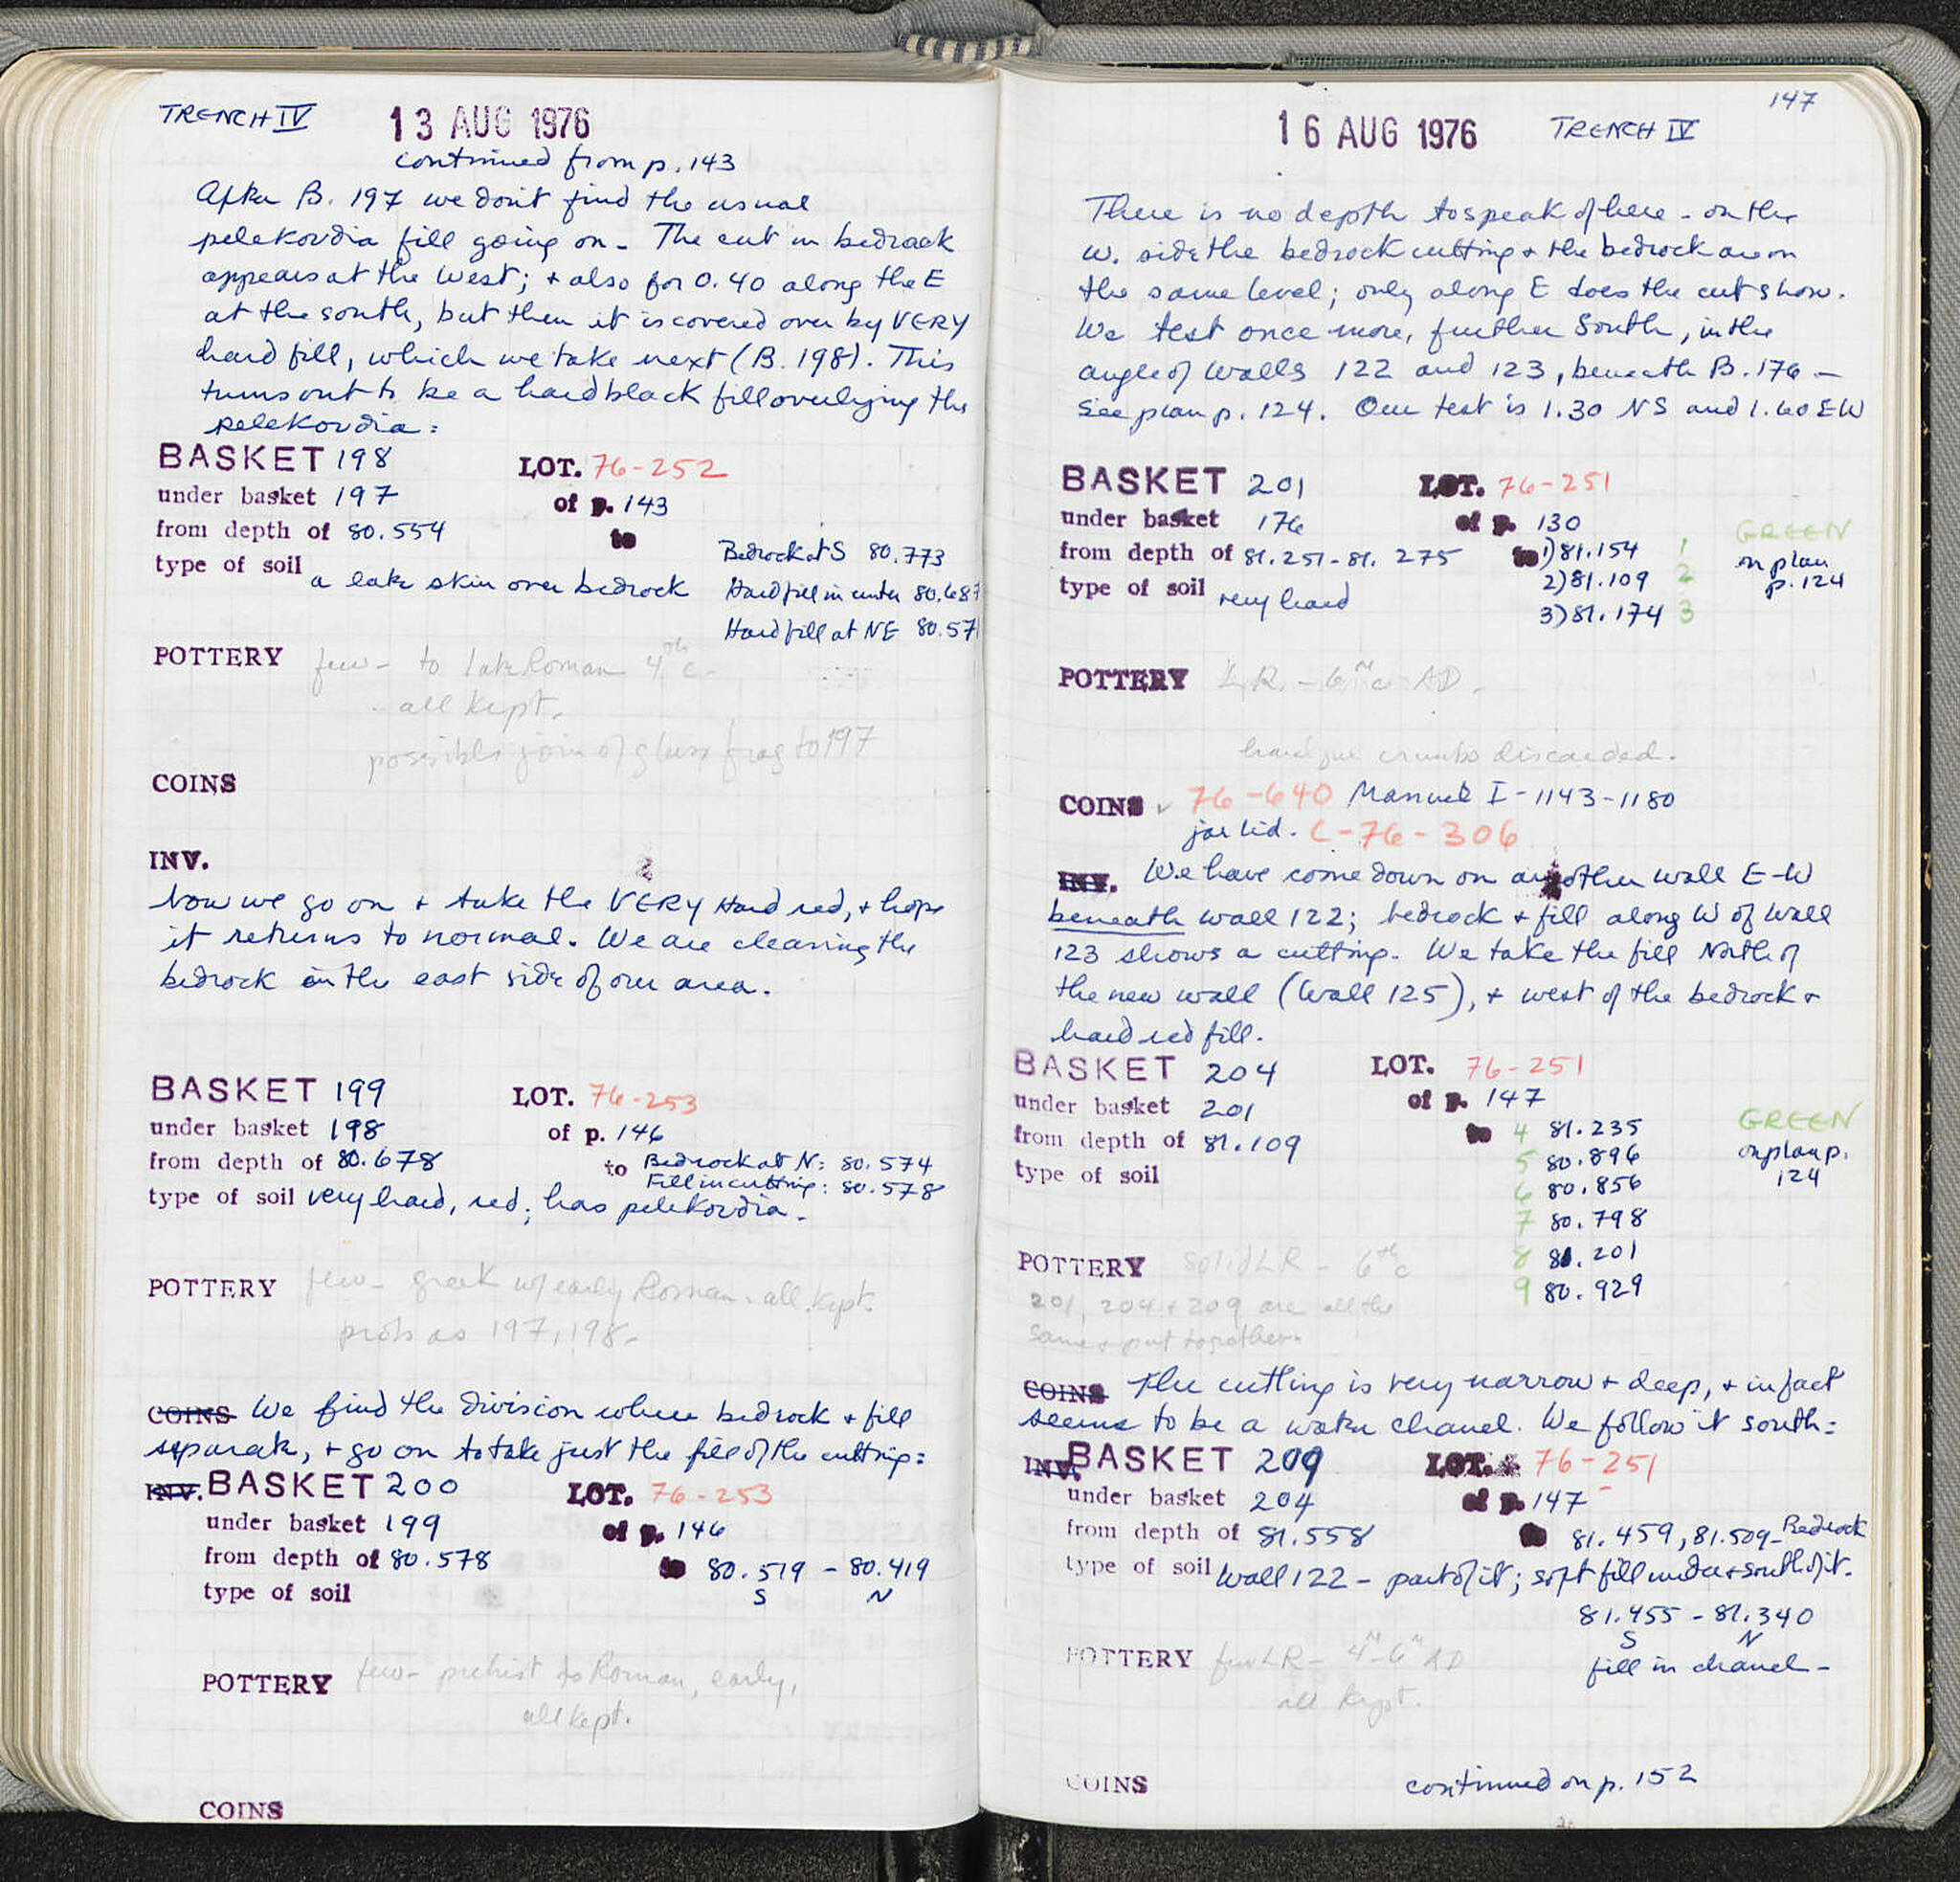 TRENCH IV
13 AUG 1976
continued from p. 143
After B. 197 we don't find the usual
pelekoudia fill going on - The cut in bedrock
appears at the west; + also for 0.40 along the E
at the south, but then it is covered over by VERY
hard fill, which we take next (B. 198). This
turns out to be a hard black fill overlying the
pelekoudia:
BASKET 198 LOT. 76-252
under basket 197 of p. 143
from depth of 80.554 to Bedrock at S 80.773
type of soil a lake skin over bedrock Hard fill in center 80.687
Hard fill at NE 80.57
POTTERY few - to late Roman 4th c.
all kept.
possible join of glass frag to 197
COINS
INV.
Now we go on + take the VERY Hard red, + hope
it returns to normal. We are clearing the
bedrock in the east side of our area.
BASKET 199 LOT. 76-253
under basket 198 of p. 146
from depth of 80.678 to Bedrock at N: 80.574
Fill in cutting: 80.578
type of soil very hard, red; has pelekoudia.
POTTERY few - greek w/ early Roman. all kept.
prob as 197, 198.
COINS We find the division where bedrock + fill
separate, + go on to take just the fill of the cutting:
INV. BASKET 200 LOT. 76-253
under basket 199 of p. 146
from depth of 80.578 to 80.519 - 80.419
type of soil S N
POTTERY few - prehist to Roman, early,
all kept.
COINS
147
16 AUG 1976 TRENCH IV
There is no depth to speak of here - on the
W. side the bedrock cutting + the bedrock are on
the same level; only along E does the cut show.
We test once more, further South, in the
angle of walls 122 and 123, beneath B. 176 -
See plan p. 124. Our test is 1.30 NS and 1.60 EW
BASKET 201 LOT. 76-251
under basket 176 of p. 130 GREEN
from depth of 81.251-81.275 to 1) 81.154 1 on plan
2) 81.109 2 p. 124
type of soil very hard
3) 81.174 3
POTTERY L.R. - 6th c AD.
handful crumbs discarded.
COINS ✓ 76-640 Manuel I - 1143-1180
jar lid. C-76-306
INV. We have come down on another wall E-W
beneath wall 122; bedrock + fill along W of Wall
123 shows a cutting. We take the fill North of
the new wall (Wall 125), + west of the bedrock +
hard red fill.
BASKET 204 LOT. 76-251
under basket 201 of p. 147
from depth of 81.109 to 4 81.235 GREEN
5 80.896 on plan p.
type of soil 6 80.856 124
7 80.798
POTTERY solid LR - 6th c 8 81.201
9 80.929
201, 204 + 209 are all the
same + put together.
COINS The cutting is very narrow + deep, + in fact
seems to be a water chanel. We follow it south:
INV. BASKET 209 LOT. 76-251
under basket 204 of p. 147
from depth of 81.558 to 81.459, 81.509 - Bedrock
type of soil Wall 122 - part of it; soft fill under + south of it.
81.455 - 81.340
S N
POTTERY few LR - 4th-6th AD fill in chanel -
all kept.
COINS continued on p. 152